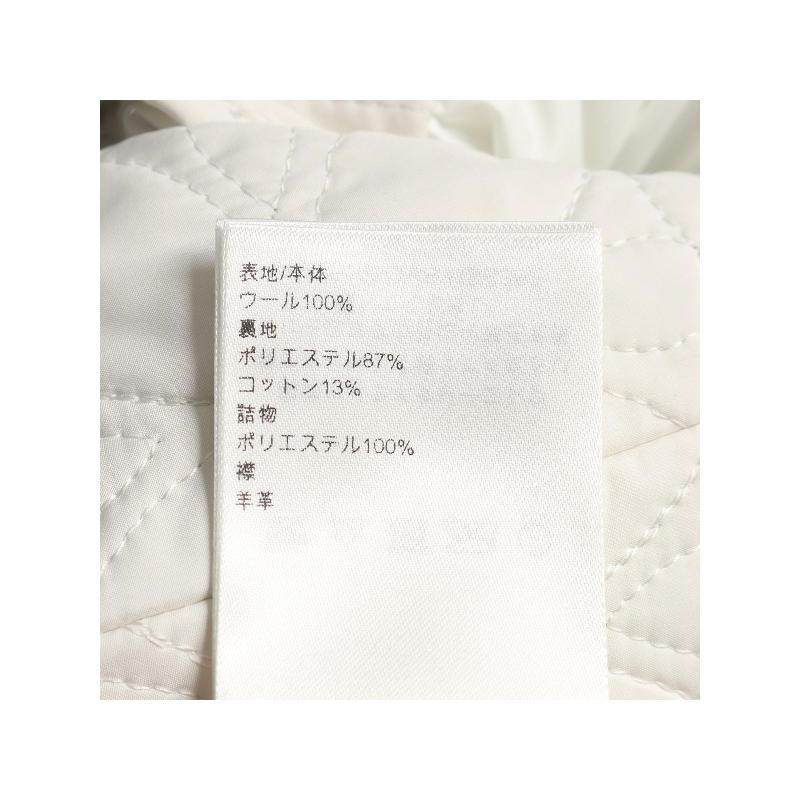 表地/本体
ウール100%
裏地
ポリエステル87%
コットン13%
詰物
ポリエステル100%
襟
羊革